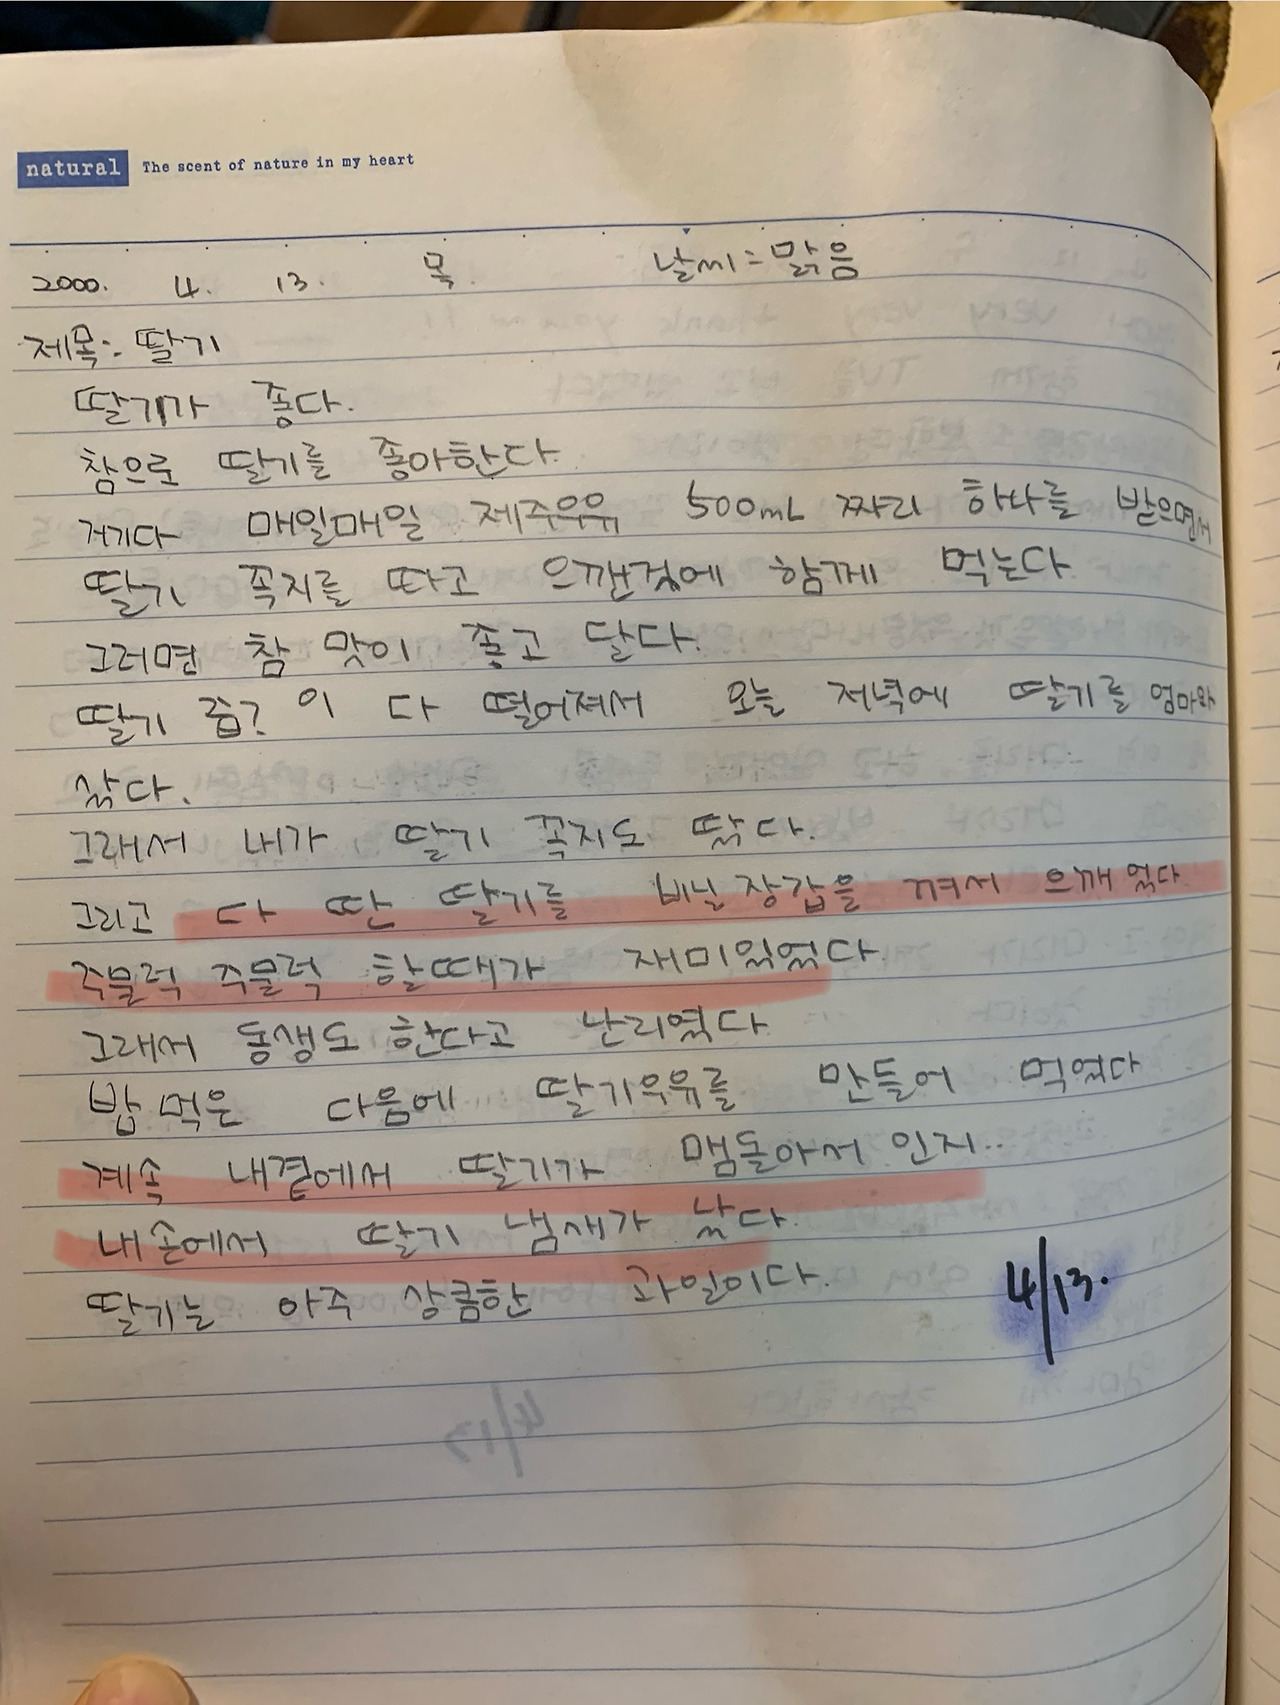 natural The scent of nature in my heart
2000. 4. 13. 목. 날씨=맑음
제목: 딸기
딸기가 좋다.
참으로 딸기를 좋아한다.
거기다 매일매일 제주우유 500mL 짜리 하나를 받으면서
딸기 꼭지를 따고 으깬것에 함께 먹는다
그러면 참 맛이 좋고 달다.
딸기 즙? 이 다 떨어져서 오늘 저녁에 딸기를 엄마와
샀다.
그래서 내가 딸기 꼭지도 땄다.
그리고 다 딴 딸기를 비닐장갑을 껴서 으깨었다
주물럭 주물럭 할때가 재미있었다.
그래서 동생도 한다고 난리였다
밥 먹은 다음에 딸기우유를 만들어 먹었다
계속 내곁에서 딸기가 맴돌아서 인지..
내 손에서 딸기 냄새가 났다.
딸기는 아주 상큼한 과일이다.
4/13.